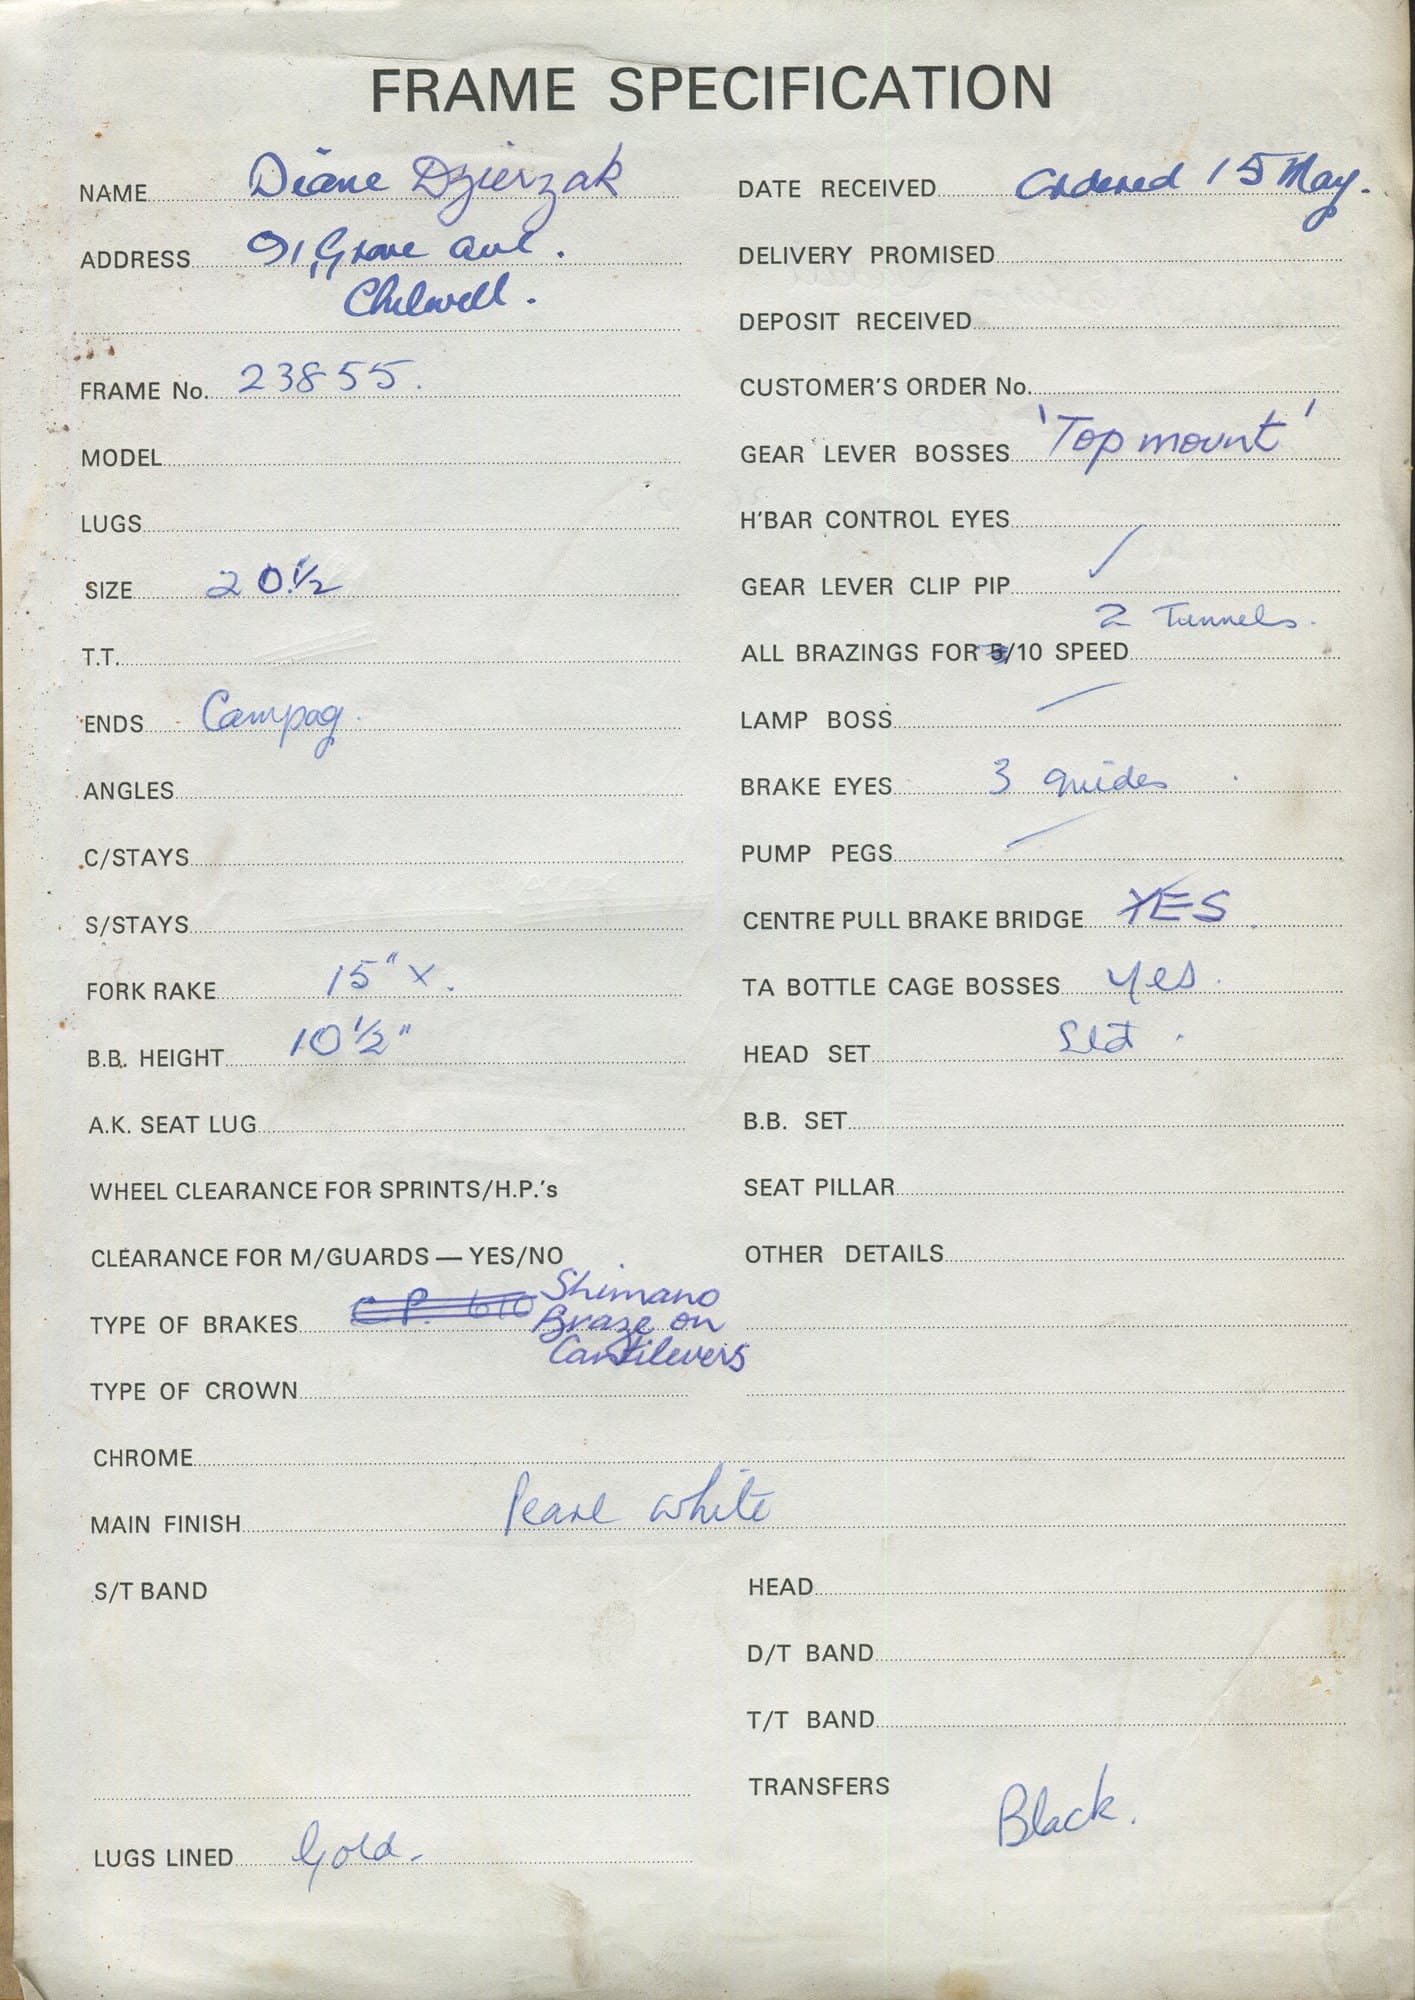 FRAME SPECIFICATION
NAME Diane Dzierzak
ADDRESS 91, Grove Ave.
Chilwell.
FRAME No. 23855.
MODEL
LUGS
SIZE 20.½
T.T.
ENDS Campag.
ANGLES
C/STAYS
S/STAYS
FORK RAKE 15" x.
B.B. HEIGHT 10½"
A.K. SEAT LUG
WHEEL CLEARANCE FOR SPRINTS/H.P.'s
CLEARANCE FOR M/GUARDS — YES/NO
TYPE OF BRAKES C.P. 610 Shimano
Braze on
Cantilevers
TYPE OF CROWN
CHROME
MAIN FINISH Pearl White
S/T BAND
LUGS LINED Gold.
DATE RECEIVED Ordered 15 May.
DELIVERY PROMISED
DEPOSIT RECEIVED
CUSTOMER'S ORDER No.
GEAR LEVER BOSSES 'Top mount'
H'BAR CONTROL EYES
GEAR LEVER CLIP PIP ✓
2 Tunnels.
ALL BRAZINGS FOR 5/10 SPEED
LAMP BOSS
BRAKE EYES 3 guides
PUMP PEGS
CENTRE PULL BRAKE BRIDGE YES
TA BOTTLE CAGE BOSSES Yes.
HEAD SET
B.B. SET
SEAT PILLAR
OTHER DETAILS
HEAD
D/T BAND
T/T BAND
TRANSFERS
Black.